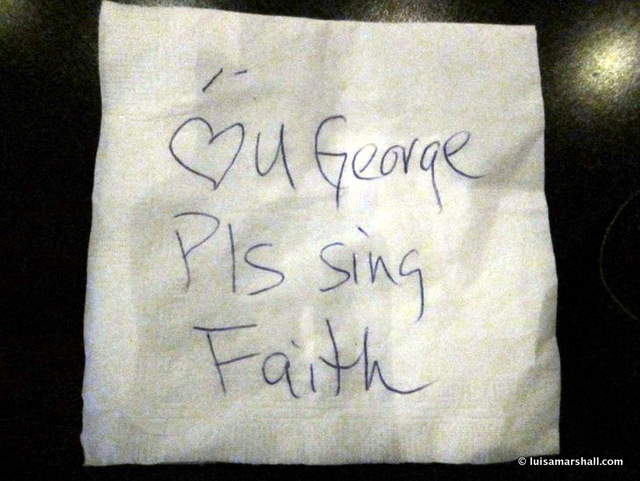 ♡ U George
Pls sing
Faith
© luisamarshall.com